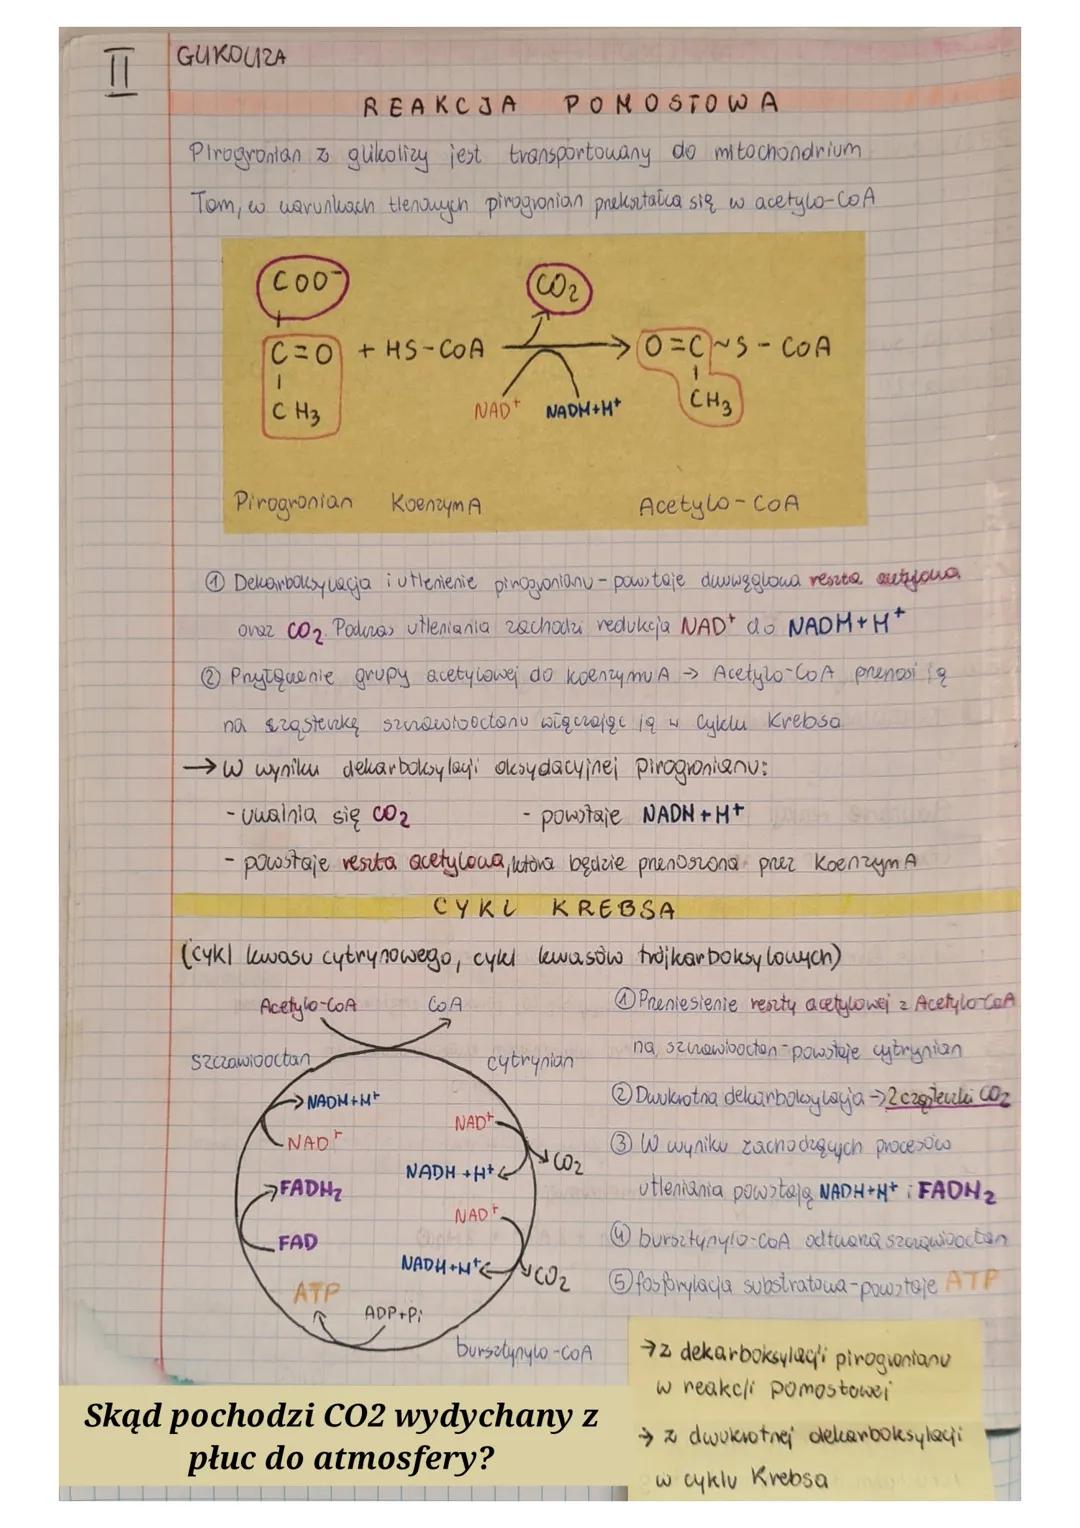 II
GLIKOLIZA
REAKCJA POMOSTOWA
Pirogronian z glikolizy jest transportowany do mitochondrium
Tam, w warunkach tlenowych pirogronian przekształca się w acetylo-CoA
COO⁻
CO₂
C=O + HS-CoA → O=C~S-CoA
CH₃
CH₃
NAD⁺ NADH+H⁺
Pirogronian Koenzym A Acetylo-CoA
① Dekarboksylacja i utlenienie pirogronianu - powstaje dwuwęglowa reszta acetylowa
oraz CO₂. Podczas utleniania zachodzi redukcja NAD⁺ do NADH+H⁺
② Przyłączenie grupy acetylowej do koenzymu A → Acetylo-CoA przenosi ją
na cząsteczkę szczawiooctanu włączając ją w cyklu Krebsa
→ W wyniku dekarboksylacji oksydacyjnej pirogronianu:
- uwalnia się CO₂ - powstaje NADH+H⁺
- powstaje reszta acetylowa, która będzie przenoszona przez koenzym A
CYKL KREBSA
(cykl kwasu cytrynowego, cykl kwasów trójkarboksylowych)
Acetylo-CoA CoA
szczawiooctan cytrynian
NADH+H⁺
NAD⁺
NAD⁺
NADH+H⁺ CO₂
FADH₂
NAD⁺
FAD
NADH+H⁺ CO₂
ATP
ADP+Pi
bursztynylo-CoA
① Przeniesienie reszty acetylowej z Acetylo-CoA
na szczawiooctan - powstaje cytrynian
② Dwukrotna dekarboksylacja → 2 cząsteczki CO₂
③ W wyniku zachodzących procesów
utleniania powstają NADH+H⁺ i FADH₂
④ bursztynylo-CoA odtwarza szczawiooctan
⑤ fosforylacja substratowa - powstaje ATP
Skąd pochodzi CO2 wydychany z
płuc do atmosfery?
→ z dekarboksylacji pirogronianu
w reakcji pomostowej
→ z dwukrotnej dekarboksylacji
w cyklu Krebsa